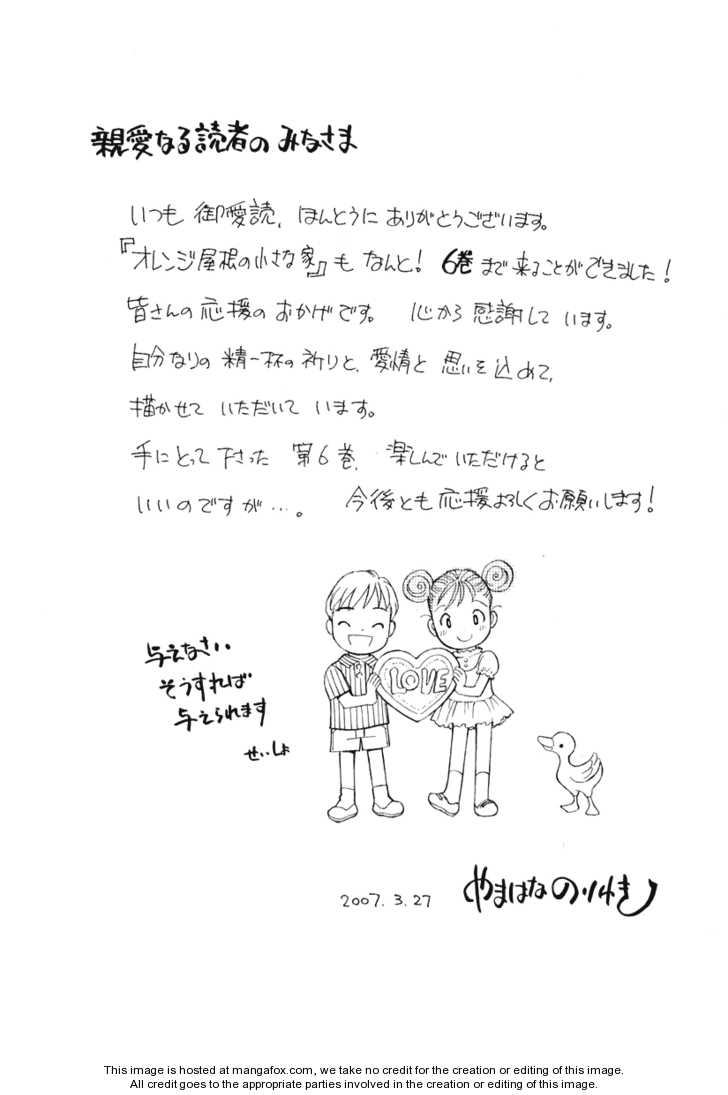 親愛なる読者の みなさま
いつも 御愛読、ほんとうに ありがとうございます。
『オレンジ屋根の小さな家』も なんと! 6巻 まで 来ることができました!
皆さんの 応援の おかげです。 心から 感謝して います。
自分なりの 精一杯の 祈りと、愛情と 思いを 込めて、
描かせて いただいて います。
手にとって 下さった 第6巻、楽しんで いただけると
いいのですが…。 今後とも 応援よろしくお願いします!
LOVE
与えなさい
そうすれば
与えられます
せいしょ
2007.3.27 やまはな のりゆき
This image is hosted at mangafox.com, we take no credit for the creation or editing of this image.
All credit goes to the appropriate parties involved in the creation or editing of this image.